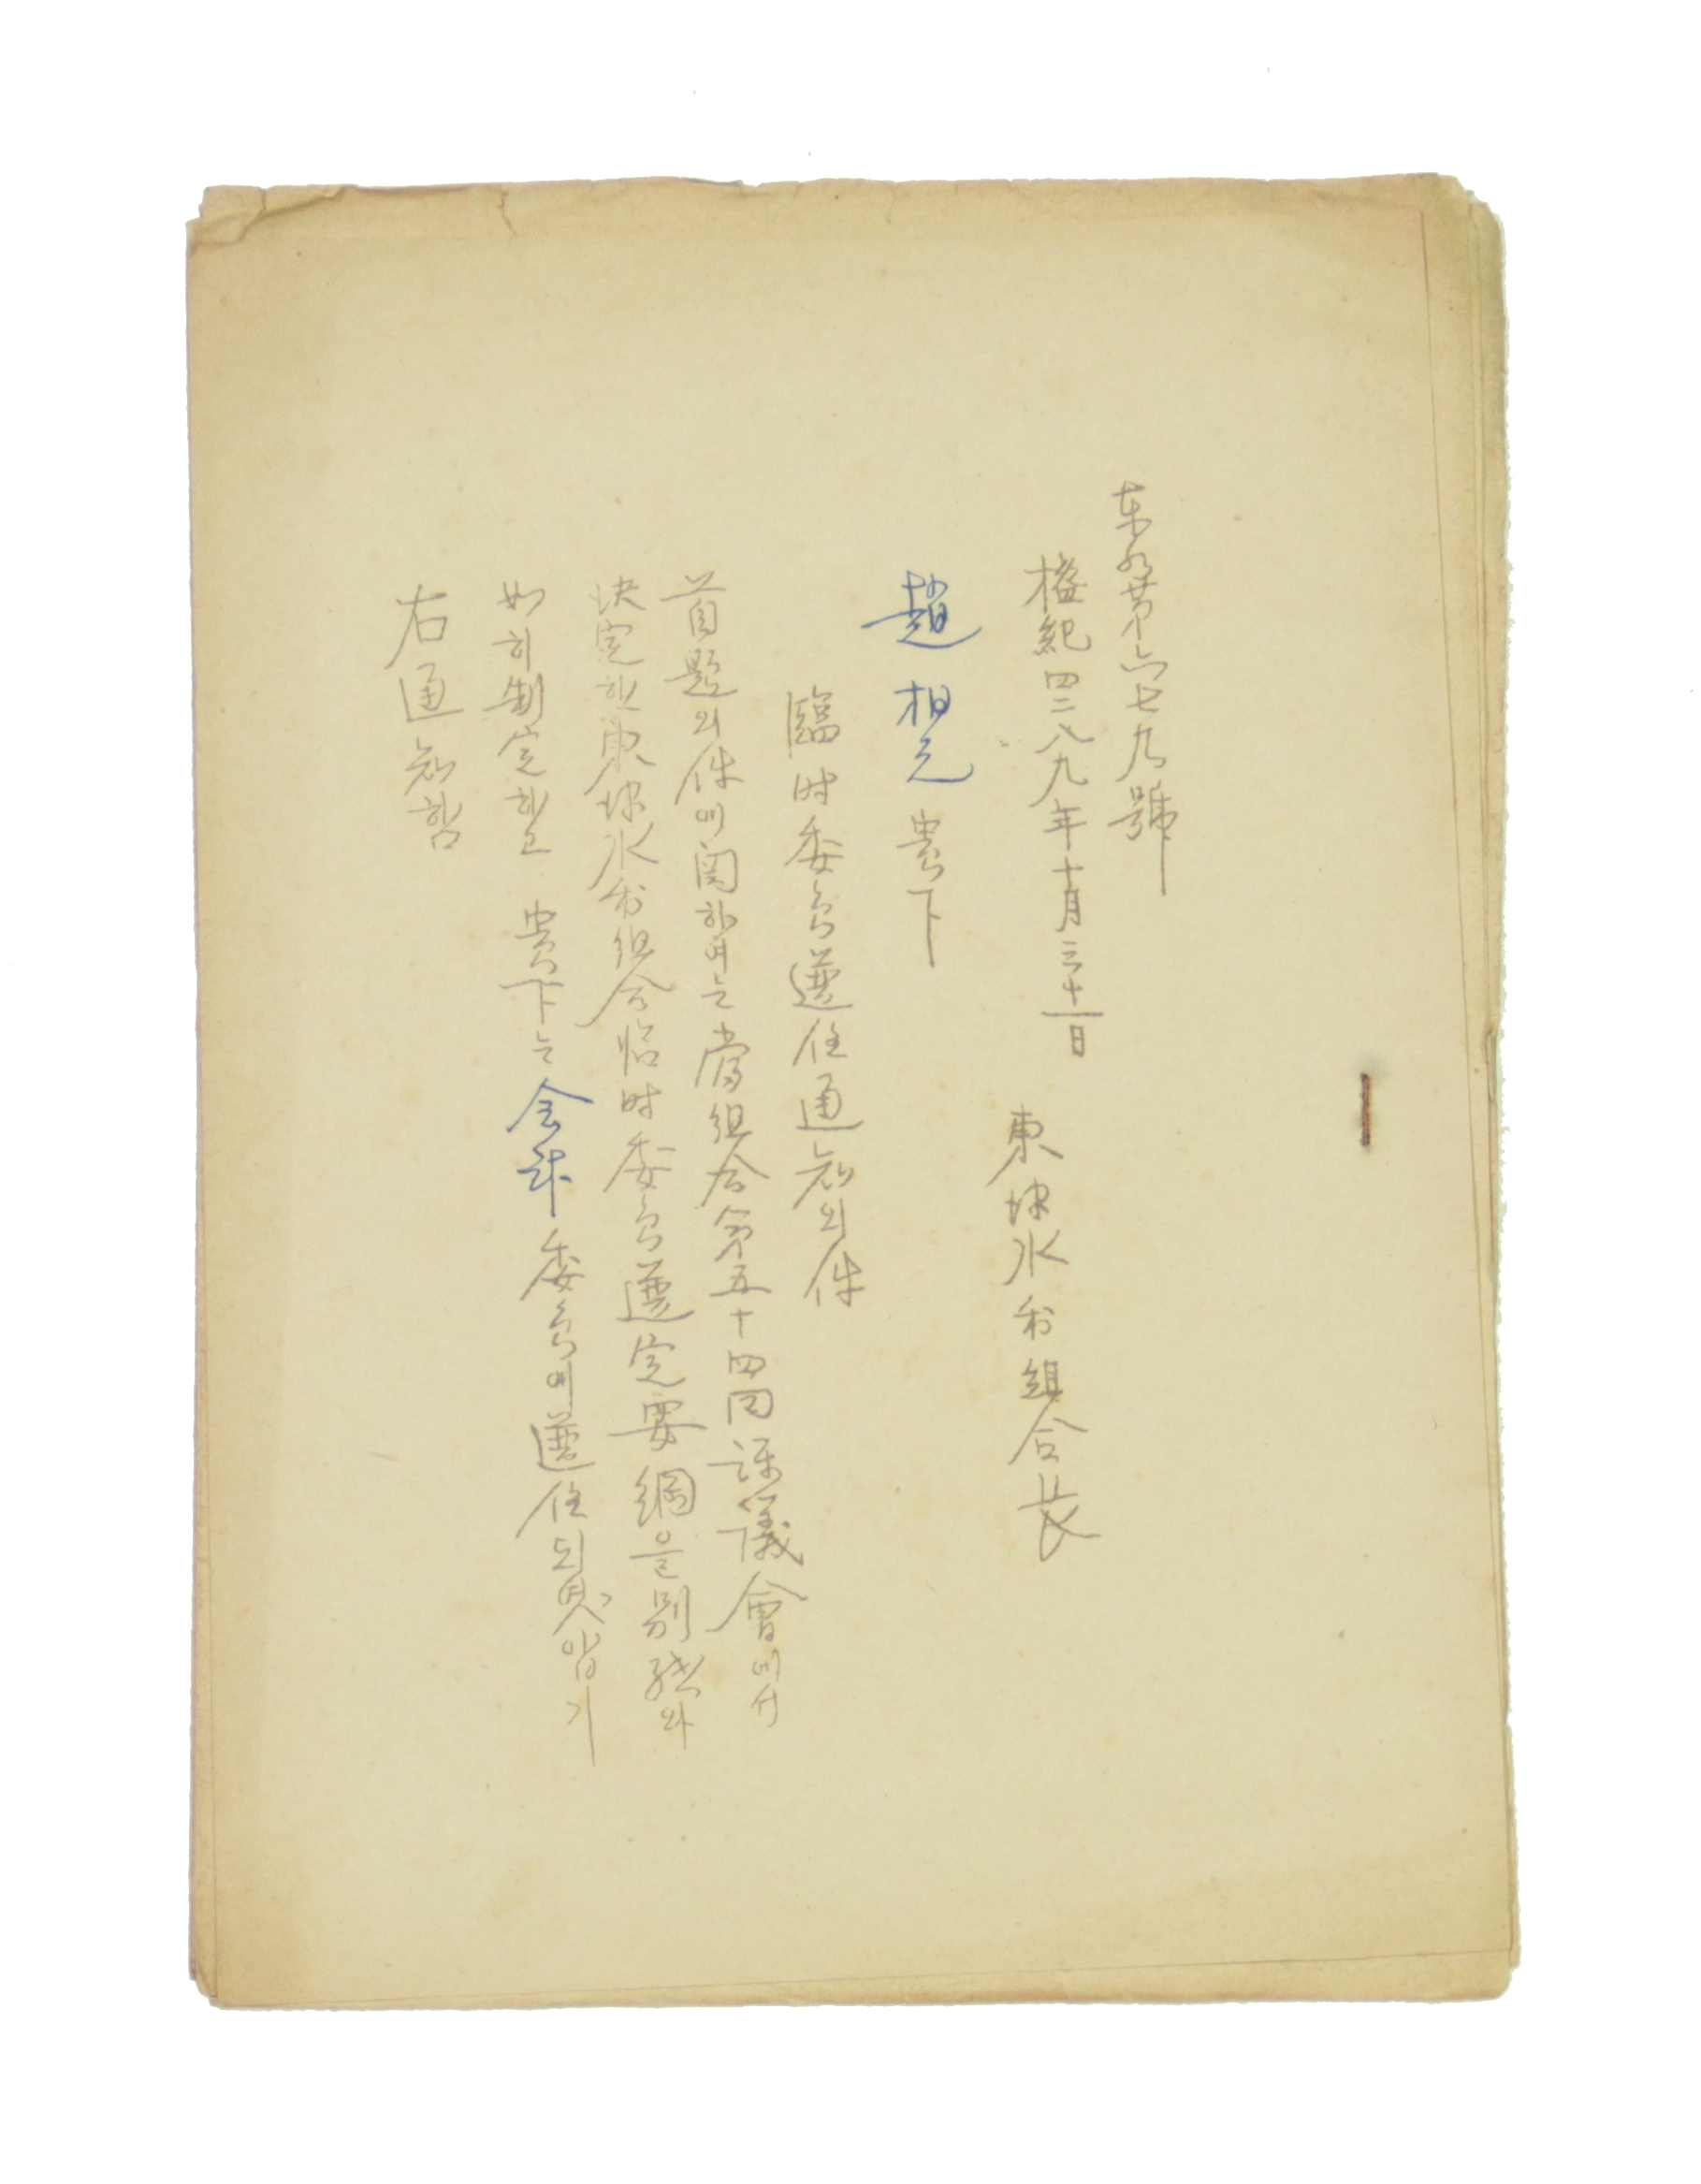 東水第六七九號
檀紀四二八九年十月三十一日
東埭水利組合長
趙相元 貴下
臨時委員選任通知의件
首題의件에関하여는當組合第五十四回評議會에서
決定한東埭水利組合臨時委員選定要綱을別紙와
如히制定하고 貴下는会計委員에選任되였압기
右通知함